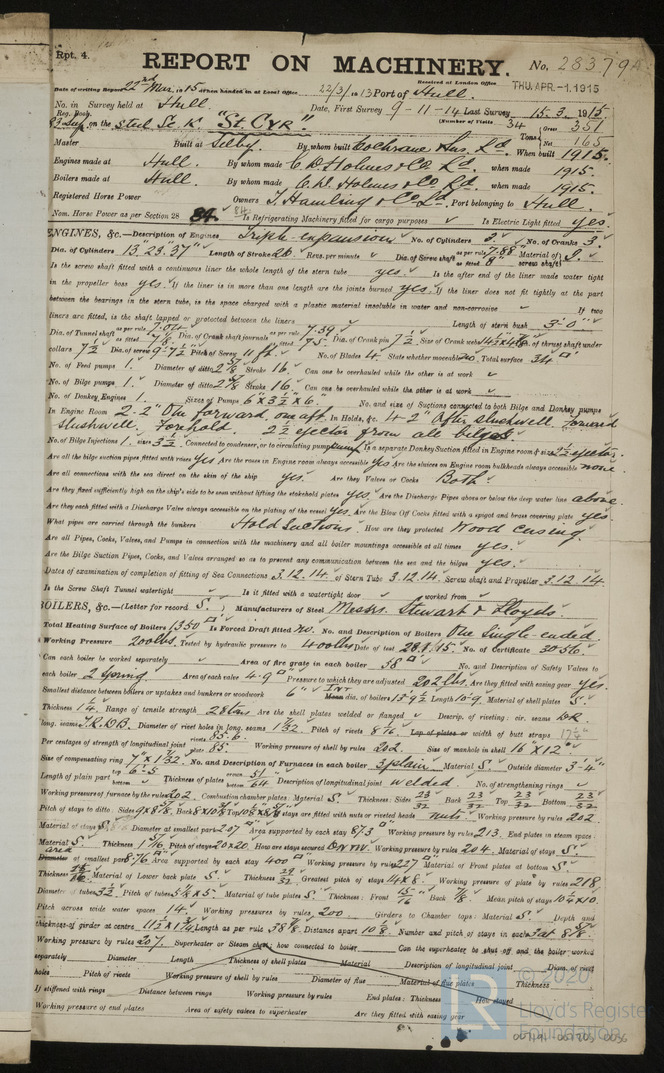 Rpt. 4.
REPORT ON MACHINERY. No. 28379
Received at London Office THU. APR - 1. 1915
Date of writing Report 22nd Mar. 1915 When handed in at Local Office 22/3/1913 Port of Hull.
No. in Survey held at Hull. Date, First Survey 9-11-14 Last Survey 15.3.1915.
Reg. Book. (Number of Visits 34
on the steel Sc. K. "St CYR". Tons Gross 351 Net 165
Master Built at Selby. By whom built Cochrane & Sons Ld. When built 1915.
Engines made at Hull. By whom made C. D. Holmes & Co Ld. when made 1915.
Boilers made at Hull. By whom made C. D. Holmes & Co Ld. when made 1915.
Registered Horse Power Owners T. Hamling & Co Ld. Port belonging to Hull.
Nom. Horse Power as per Section 28 84. Is Refrigerating Machinery fitted for cargo purposes Is Electric Light fitted yes.
ENGINES, &c.—Description of Engines Triple-expansion No. of Cylinders 3 No. of Cranks 3.
Dia. of Cylinders 13" 23" 37" Length of Stroke 26 Revs. per minute Dia. of Screw shaft as per rule 7.88 as fitted 8" Material of screw shaft
Is the screw shaft fitted with a continuous liner the whole length of the stern tube yes. Is the after end of the liner made water tight
in the propeller boss yes. If the liner is in more than one length are the joints burned yes. If the liner does not fit tightly at the part
between the bearings in the stern tube, is the space charged with a plastic material insoluble in water and non-corrosive If two
liners are fitted, is the shaft lapped or protected between the liners Length of stern bush 3'-0"
Dia. of Tunnel shaft as per rule 7.04 as fitted 7 1/8 Dia. of Crank shaft journals as per rule 7.39 as fitted 7.5 Dia. of Crank pin 7 1/2 Size of Crank webs Dia. of thrust shaft under
collars 7 1/2 Dia. of screw 9-7 1/2 Pitch of Screw 11 ft. No. of Blades 4. State whether moveable no Total surface 34
No. of Feed pumps 1. Diameter of ditto 2 5/8 Stroke 16. Can one be overhauled while the other is at work
No. of Bilge pumps 1. Diameter of ditto 2 7/8 Stroke 16. Can one be overhauled while the other is at work
No. of Donkey Engines 1. Sizes of Pumps 6" x 3 1/2 x 6". No. and size of Suctions connected to both Bilge and Donkey pumps
In Engine Room 2-2" One forward one aft. In Holds, &c. 4-2" After slushwell Forward
slushwell. Forehold. 2 1/2 ejector from all bilges.
No. of Bilge Injections 1. sizes 3 1/2 Connected to condenser, or to circulating pump pump Is a separate Donkey Suction fitted in Engine room & size 2 1/2 ejector.
Are all the bilge suction pipes fitted with roses yes Are the roses in Engine room always accessible yes Are the sluices on Engine room bulkheads always accessible none
Are all connections with the sea direct on the skin of the ship yes. Are they Valves or Cocks Both
Are they fixed sufficiently high on the ship's side to be seen without lifting the stokehold plates yes. Are the Discharge Pipes above or below the deep water line above
Are they each fitted with a Discharge Valve always accessible on the plating of the vessel yes. Are the Blow Off Cocks fitted with a spigot and brass covering plate yes.
What pipes are carried through the bunkers Hold Suctions. How are they protected Wood casing.
Are all Pipes, Cocks, Valves, and Pumps in connection with the machinery and all boiler mountings accessible at all times yes.
Are the Bilge Suction Pipes, Cocks, and Valves arranged so as to prevent any communication between the sea and the bilges yes.
Dates of examination of completion of fitting of Sea Connections 3.12.14. of Stern Tube 3.12.14 Screw shaft and Propeller 3.12.14
Is the Screw Shaft Tunnel watertight Is it fitted with a watertight door worked from
BOILERS, &c.—(Letter for record S.) Manufacturers of Steel Messrs. Stewart & Lloyds.
Total Heating Surface of Boilers 1350 Is Forced Draft fitted no. No. and Description of Boilers One Single-ended
Working Pressure 200 lbs. Tested by hydraulic pressure to 400 lbs Date of test 28.1.15. No. of Certificate 3056.
Can each boiler be worked separately Area of fire grate in each boiler 38 No. and Description of Safety Valves to
each boiler 2 Spring. Area of each valve 4.9 Pressure to which they are adjusted 202 lbs. Are they fitted with easing gear yes.
Smallest distance between boilers or uptakes and bunkers or woodwork 6" Int dia. of boilers 13-9 1/2 Length 10-9. Material of shell plates S
Thickness 1 1/4 Range of tensile strength 28 tons Are the shell plates welded or flanged Descrip. of riveting: cir. seams DR
long. seams T.R.D.B. Diameter of rivet holes in long. seams 1 7/32 Pitch of rivets 8 7/16 Lap of plates or width of butt straps 17 1/2"
Per centages of strength of longitudinal joint rivets 85.6 plate 85. Working pressure of shell by rules 202. Size of manhole in shell 16" x 12"
Size of compensating ring 7" x 1 7/32. No. and Description of Furnaces in each boiler 3 plain. Material S. Outside diameter 3'-4"
Length of plain part top 6-5 bottom Thickness of plates crown 51/64 bottom Description of longitudinal joint welded. No. of strengthening rings
Working pressure of furnace by the rules 202. Combustion chamber plates: Material S. Thickness: Sides 23/32 Back 23/32 Top 23/32 Bottom 23/32
Pitch of stays to ditto: Sides Back Top If stays are fitted with nuts or riveted heads nuts. Working pressure by rules 202
Material of stays S. Diameter at smallest part 2.07 Area supported by each stay 87.3 Working pressure by rules 213. End plates in steam space:
Material S. Thickness 1 1/16. Pitch of stays 20 x 20. How are stays secured DNW. Working pressure by rules 204. Material of stays S.
Area at smallest part 8.76 Area supported by each stay 400 Working pressure by rules 227 Material of Front plates at bottom S.
Thickness Material of Lower back plate S. Thickness 29/32 Greatest pitch of stays 14 x 8. Working pressure of plate by rules 218
Diameter of tubes 3 1/2 Pitch of tubes Material of tube plates S. Thickness: Front 15/16 Back 7/8 Mean pitch of stays
Pitch across wide water spaces 14. Working pressures by rules 200 Girders to Chamber tops: Material S. Depth and
thickness of girder at centre Length as per rule Distance apart Number and pitch of stays in each
Working pressure by rules 207. Superheater or Steam chest; how connected to boiler Can the superheater be shut off and the boiler worked
separately Diameter Length Thickness of shell plates Material Description of longitudinal joint Diam. of rivet
holes Pitch of rivets Working pressure of shell by rules Diameter of flue Material of flue plates Thickness
If stiffened with rings Distance between rings Working pressure by rules End plates: Thickness How stayed
Working pressure of end plates Area of safety valves to superheater Are they fitted with easing gear
© 2020
LR Lloyd's Register
Foundation
007191-007205-0056